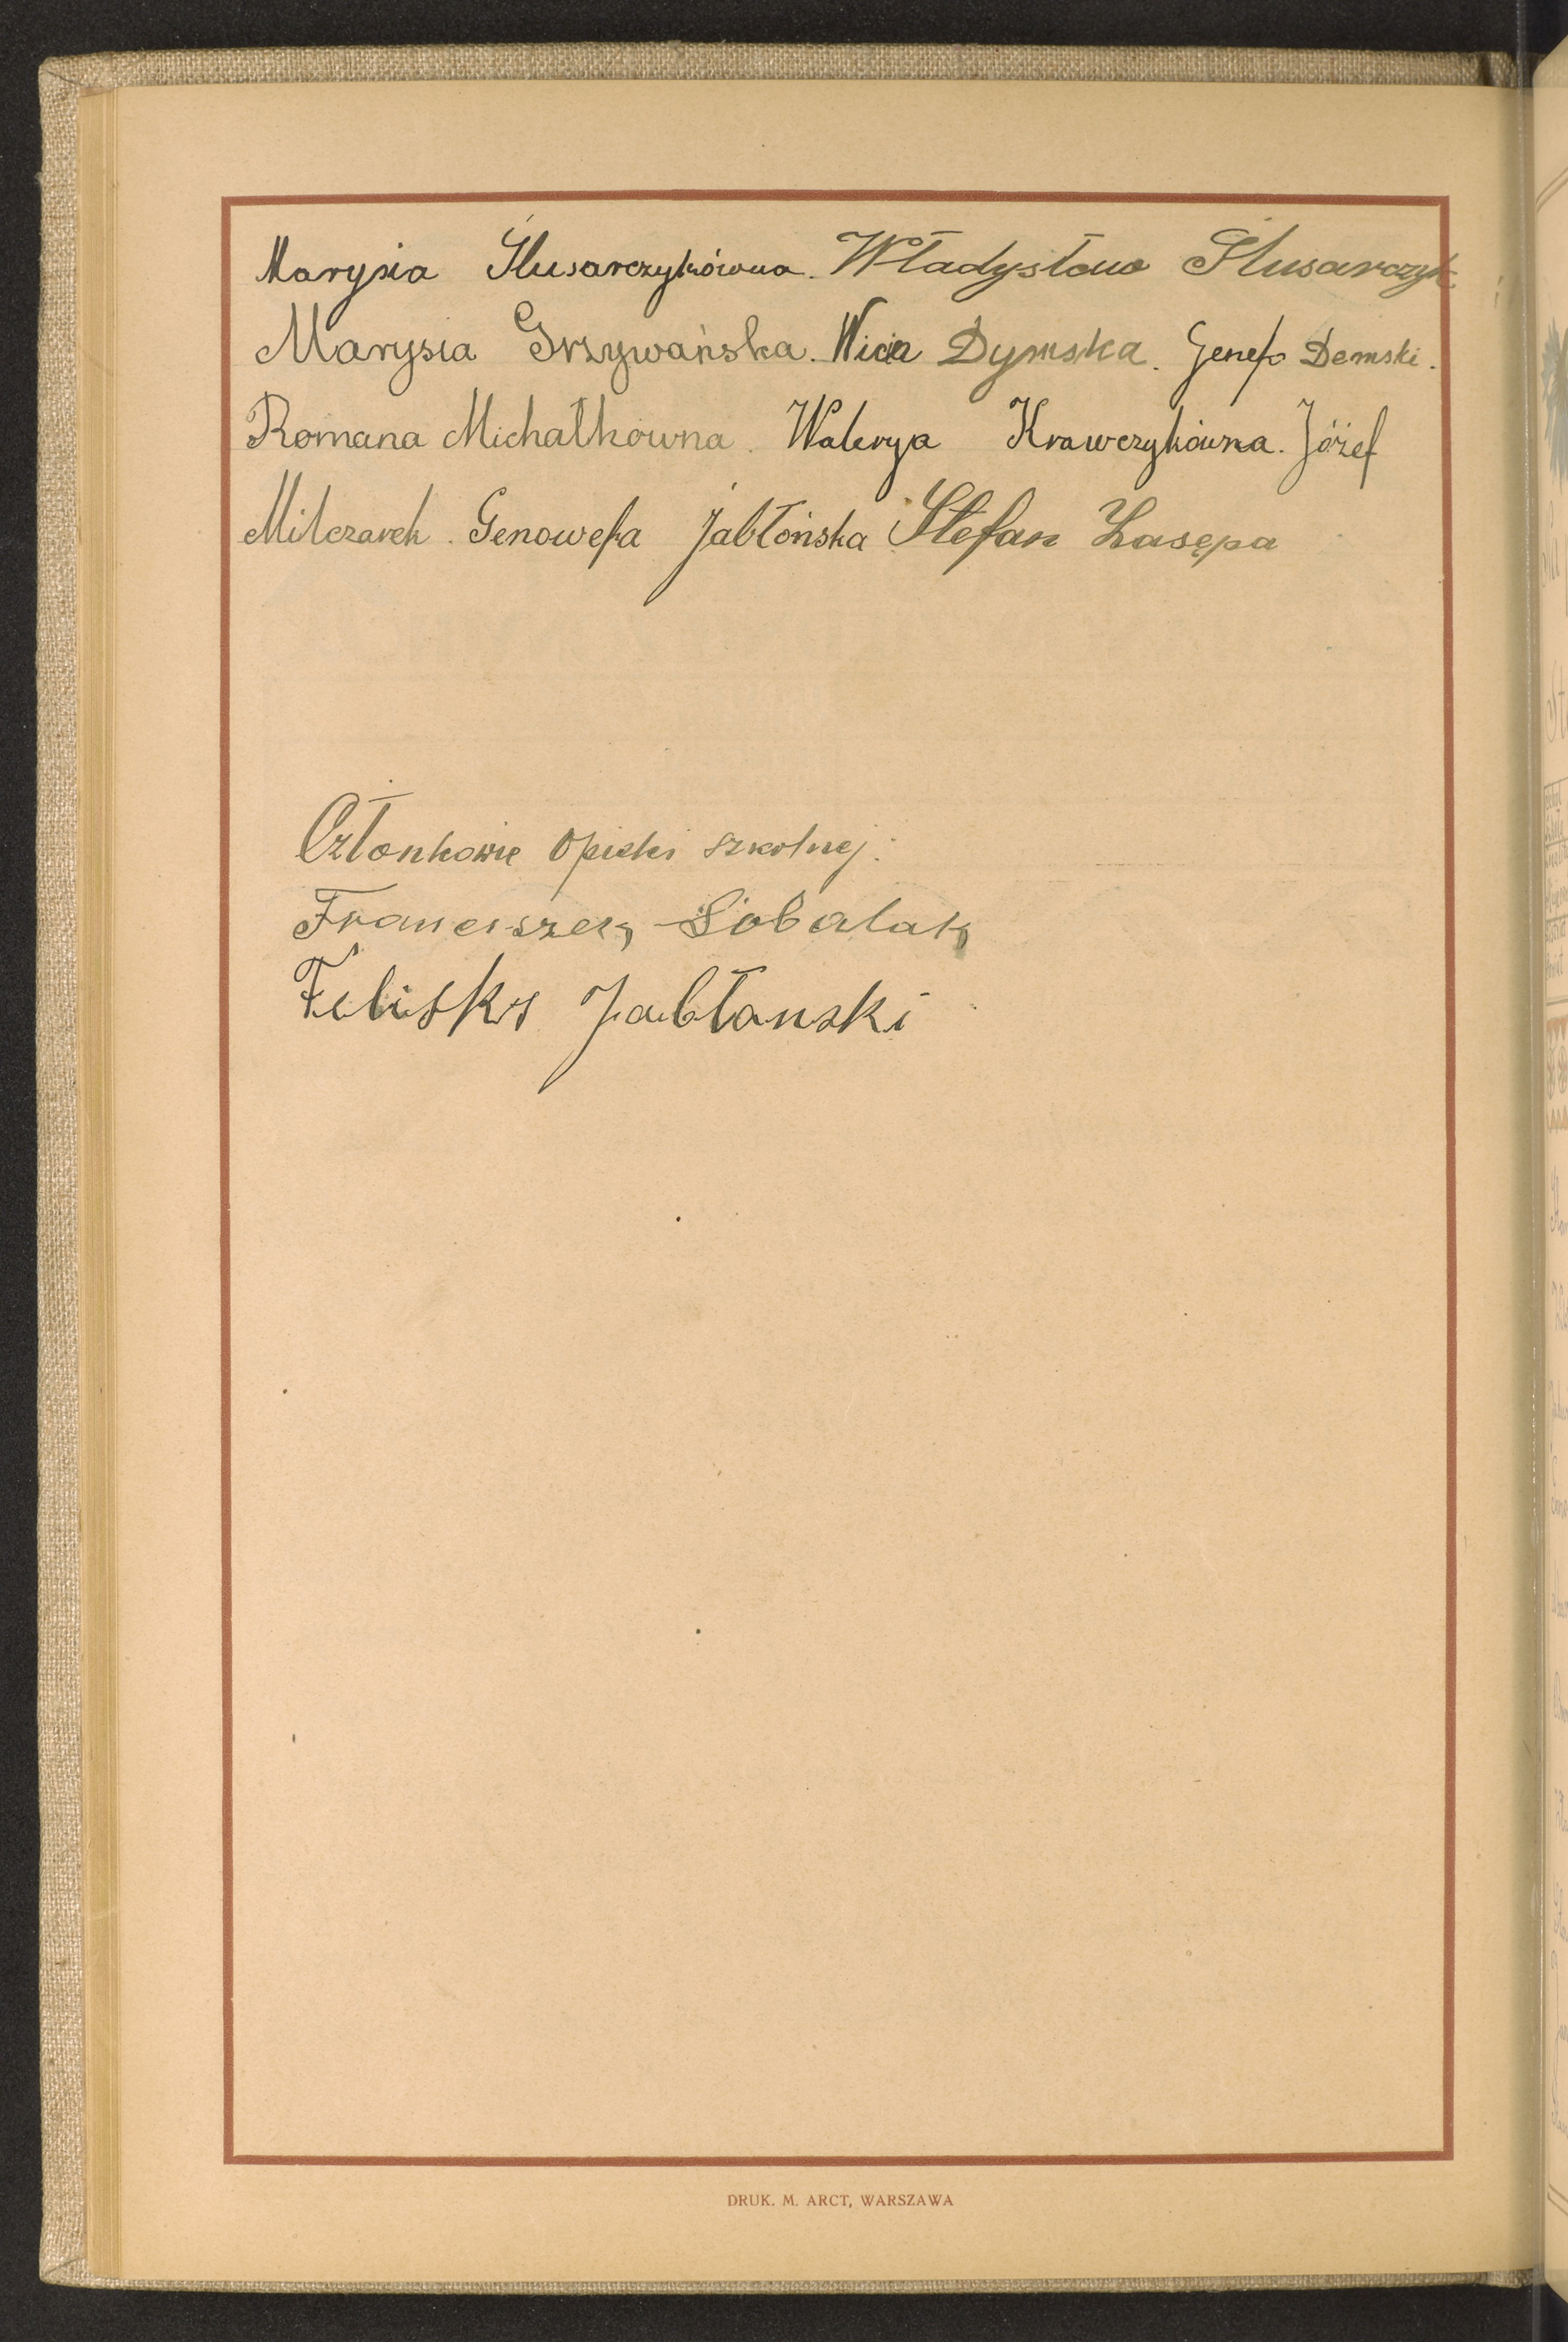 Marysia Ślusarczykówna. Władysława Ślusarczyk
Marysia Grzywańska. Wicia Dymska. Genefa Demski.
Romana Michałkówna. Waleryja Krawczykówna. Józef
Milczarek. Genowefa Jabłońska Stefan Zasępa
Członkowie Opieki szkolnej:
Franciszek Sobalak
Felisks Jabłanski
DRUK. M. ARCT, WARSZAWA